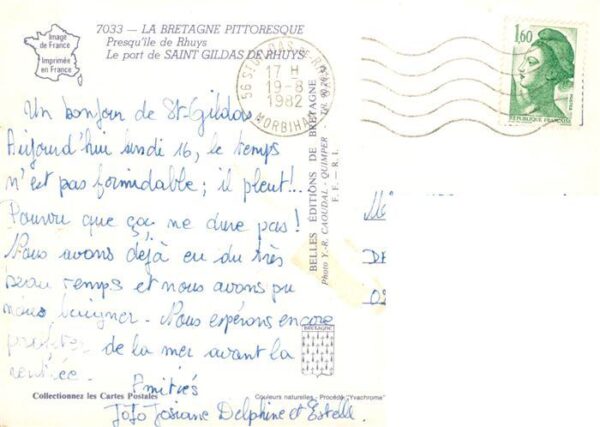 7033 — LA BRETAGNE PITTORESQUE
Presqu'île de Rhuys
Le port de SAINT GILDAS DE RHUYS
Image
de France
Imprimée
en France
Un bonjour de St-Gildas
Aujourd'hui lundi 16, le temps
n'est pas formidable; il pleut!..
Pourvu que ça ne dure pas!
Nous avons déjà eu du très
beau temps et nous avons pu
nous baigner - Nous espérons encore
profiter de la mer avant la
rentrée.
Amitiés
Jojo Josiane Delphine et Estelle.
Collectionnez les Cartes Postales
Couleurs naturelles - Procédé "Yvachrome"
BELLES ÉDITIONS DE BRETAGNE
Photo Y.-R. CAOUDAL - QUIMPER -
F. F. - R. I.
BRETAGNE
56 ST GILDAS DE RHUYS
17 H
19-8
1982
MORBIHAN
1,60
REPUBLIQUE FRANÇAISE
DE